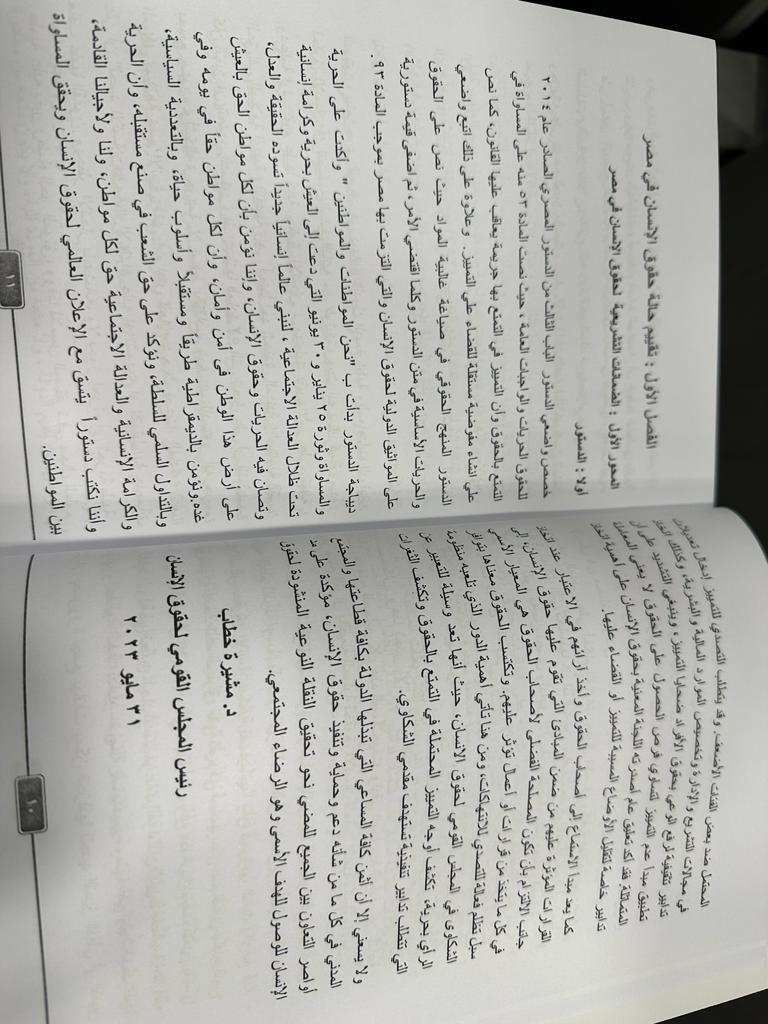 المحتمل ضد بعض الفئات الأضعف. وقد يتطلب التصدي للتمييز إدخال تعديلات
في مجالات التشريع والإدارة وتخصيص الموارد المالية والبشرية، وكذلك اتخاذ
تدابير تثقيفية لرفع الوعي بحقوق الأفراد ضحايا التمييز، وينبغي التشديد على أن
تطبيق مبدأ عدم التمييز لتساوي فرص الحصول على الحقوق لا يعني المعاملة
المتماثلة فقد أكد تعليق عام أصدرته اللجنة المعنية بحقوق الإنسان على أهمية اتخاذ
تدابير خاصة لتقليل الأوضاع المسببة للتمييز أو القضاء عليها.
كما يعد مبدأ الاستماع إلى أصحاب الحقوق وأخذ آرائهم في الاعتبار عند اتخاذ
القرارات المؤثرة عليهم من ضمن المبادئ التي تقوم عليها حقوق الإنسان، إلى
جانب الالتزام بأن تكون المصلحة الفضلى لأصحاب الحقوق هي المعيار الأسمى
في كل ما يتخذ من قرارات أو أعمال تؤثر عليهم. وتكتسب الحقوق معناها بتوافر
سبل تظلم فعالة للتصدي للانتهاكات، ومن هنا تأتي أهمية الدور الذي تلعبه منظومة
الشكاوى في المجلس القومي لحقوق الانسان، حيث أنها تعد وسيلة للتعبير عن
الرأي بحرية، تكشف أوجه التمييز المحتملة في التمتع بالحقوق وتكشف الثغرات
التي تتطلب تدابير تنفيذية تستهدف مقدمي الشكاوى.
ولا يسعني إلا أن أثمن كافة المساعي التي تبذلها الدولة بكافة قطاعتها والمجتمع
المدني في كل ما من شأنه دعم وحماية وتنفيذ حقوق الإنسان، مؤكدة على مد
أواصر التعاون بين الجميع للمضي نحو تحقيق النقلة النوعية المنشودة لحقوق
الإنسان للوصول للهدف الأسمى وهو الرضاء المجتمعي.
د. مشيرة خطاب
رئيس المجلس القومي لحقوق الإنسان
٣١ مايو ٢٠٢٣
١٠
الفصل الأول : تقييم حالة حقوق الإنسان في مصر
المحور الأول : الضمانات التشريعية لحقوق الإنسان في مصر
أولا : الدستور
خصص واضعي الدستور الباب الثالث من الدستور المصري الصادر عام ٢٠١٤
للحقوق الحريات والواجبات العامة ، حيث نصت المادة ٥٣ منه على المساواة في
التمتع بالحقوق وأن التمييز في التمتع بها جريمة يعاقب عليها القانون، كما نص
على إنشاء مفوضية مستقلة للقضاء على التمييز. وعلاوة على ذلك اتبع واضعي
الدستور المنهج الحقوقي في صياغة غالبية المواد حيث نص على الحقوق
والحريات الأساسية في متن الدستور وكلما اقتضى الأمر، ثم أضفى قيمة دستورية
على المواثيق الدولية لحقوق الإنسان والتي التزمت بها مصر بموجب المادة ٩٣ .
ديباجة الدستور بدأت ب "نحن المواطنات والمواطنين " وأكدت على الحرية
والمساواة وثورة ٢٥ يناير و٣٠ يونيو التي دعت إلى العيش بحرية وكرامة إنسانية
تحت ظلال العدالة الاجتماعية ، لنبني عالماً إنسانياً جديداً تسوده الحقيقة والعدل،
وتصان فيه الحريات وحقوق الإنسان، وإننا نؤمن بأن لكل مواطن الحق بالعيش
على أرض هذا الوطن فى أمن وأمان، وأن لكل مواطن حقاً في يومه وفي
غده.ونؤمن بالديمقراطية طريقاً ومستقبلاً وأسلوب حياة، وبالتعددية السياسية،
وبالتداول السلمي للسلطة، ونؤكد على حق الشعب في صنع مستقبله، وأن الحرية
والكرامة الإنسانية والعدالة الاجتماعية حق لكل مواطن، ولنا ولأجيالنا القادمة،
وأننا نكتب دستوراً يتسق مع الإعلان العالمي لحقوق الإنسان ويحقق المساواة
بين المواطنين.
١١